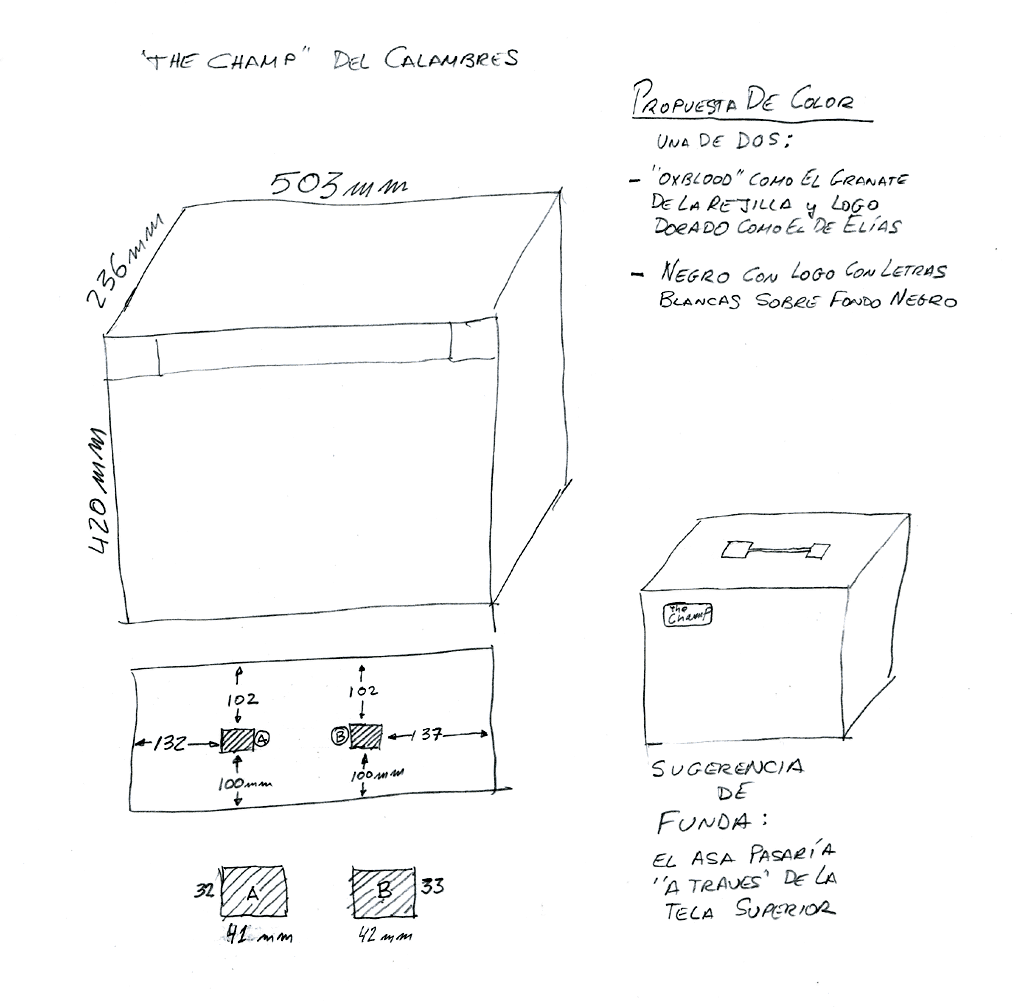 "THE CHAMP" DEL CALAMBRES
PROPUESTA DE COLOR
UNA DE DOS:
- "OXBLOOD" COMO EL GRANATE
DE LA REJILLA Y LOGO
DORADO COMO EL DE ELÍAS
- NEGRO CON LOGO CON LETRAS
BLANCAS SOBRE FONDO NEGRO
503mm
236mm
420mm
102
102
132
A
B
137
100mm
100mm
32
A
B
33
41mm
42mm
The
Champ
SUGERENCIA
DE
FUNDA:
EL ASA PASARÍA
"A TRAVES" DE LA
TELA SUPERIOR